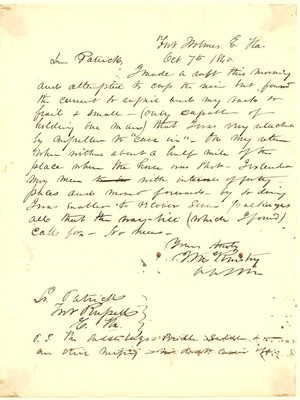 Fort Holmes E. Fla.
Oct 7th 1840.
Dr Patrick,
I made a raft this morning
and attempted to cross the river but found
the current so rapid and my raft so
frail & small – (only capable of
holding one man) that I was very reluctantly
compelled to "cave in" – On my return
when within about a half mile of the
place where the horse was shot – I extended
my men with intervals of forty
paces and moved forwards – by so doing
I was enabled to recover seven packages
all that the way-bill (which I found)
calls for – No news –
Yours truly
Dr Patrick
Fort Russell
E. Fla.
P.S. The Saddle bags – Bridle Saddle &c
are still missing